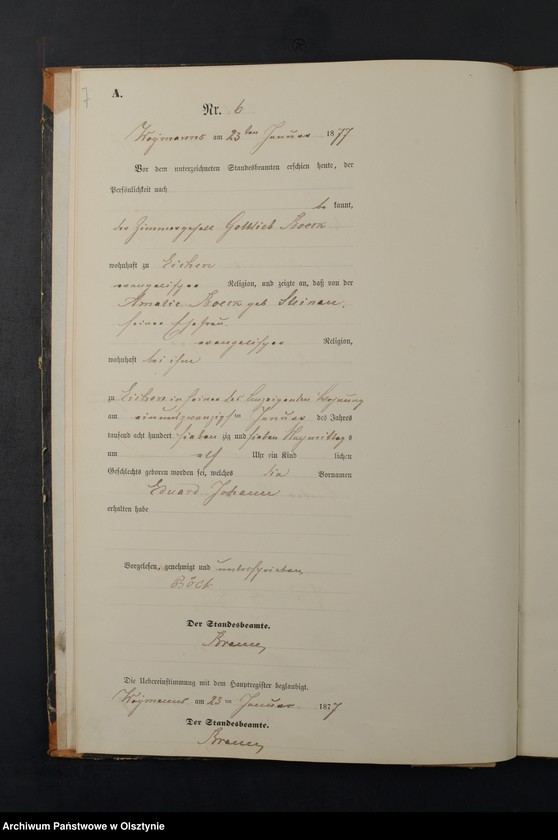 7
A.
Nr. 6
Woymanns am 23ten Januar 1877
Vor dem unterzeichneten Standesbeamten erschien heute, der
Persönlichkeit nach
be kannt,
der Zimmergesell Gottlieb
wohnhaft zu Eichen
evangelischer Religion, und zeigte an, daß von der
Amalie geb
seiner Ehefrau
evangelischer Religion,
wohnhaft bei ihm
zu Eichen in seiner des Anzeigenden Wohnung
am einundzwanzigsten Januar des Jahres
tausend acht hundert sieben zig und sieben Vormittags
um elf Uhr ein Kind lichen
Geschlechts geboren worden sei, welches die Vornamen
Eduard Johann
erhalten habe
Vorgelesen, genehmigt und unterschrieben
Der Standesbeamte.
Die Uebereinstimmung mit dem Hauptregister beglaubigt.
Woymanns am 23ten Januar 1877
Der Standesbeamte.
Archiwum Państwowe w Olsztynie